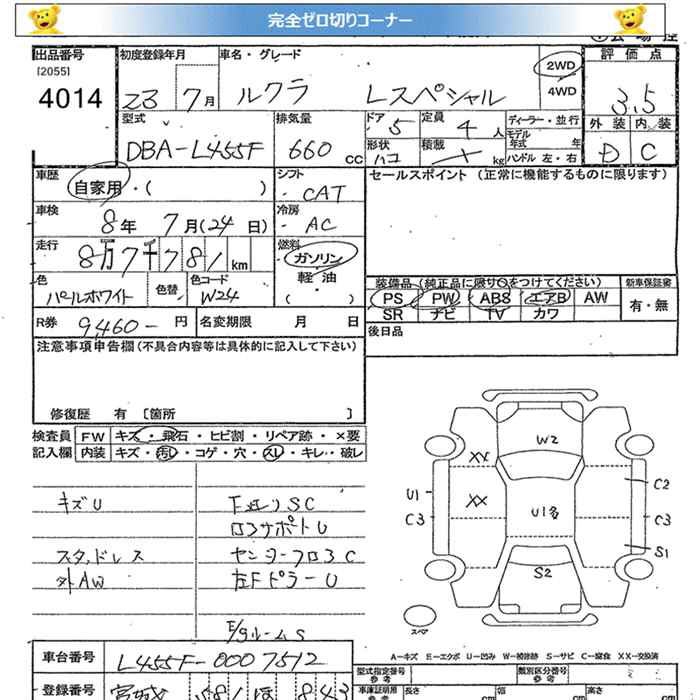 完全ゼロ切りコーナー
出品番号 初度登録年月 車名・グレード 評価点
[2055] 2WD
4014 23 7月 ルクラ Lスペシャル 4WD 3.5
型式 排気量 ドア 5 定員 4 人 ディーラー・並行 外装 内装
DBA-L455F 660 cc 形状 ハコ 積載 kg モデル年式 年 D C
ハンドル 左・右
車歴 自家用・( ) シフト CAT セールスポイント (正常に機能するものに限ります)
車検 8年 7月(24日) 冷房 AC
走行 8万7千781km 燃料 ガソリン
軽・油
( )
色 パールホワイト 色替 色コード W24
装備品(純正品に限り○をつけてください) 新車保証書
PS PW ABS エアB AW 有・無
SR ナビ TV カワ
R券 9,460- 円 名変期限 月 日 後日品
注意事項申告欄(不具合内容等は具体的に記入して下さい)
修復歴 有 [箇所 ]
検査員 FW キズ・飛石・ヒビ割・リペア跡・×要
記入欄 内装 キズ・汚れ・コゲ・穴・スレ・キレ・破レ
キズU
SC
ロンサポートU
スタッドレス
外AW 左Fピラー U
E/gルームS
W2
XX
XX
U1
C3
U1多
C2
C3
S1
S2
スペア
A-キズ E-エクボ U-凹み W-補修跡 S-サビ C-腐食 XX-交換済
車台番号 L455F-0007512
型式指定番号 参考 類別区分番号 参考
登録番号 宮城 581 ほ 843
車庫証明用 参考 長さ cm 幅 cm 高さ cm